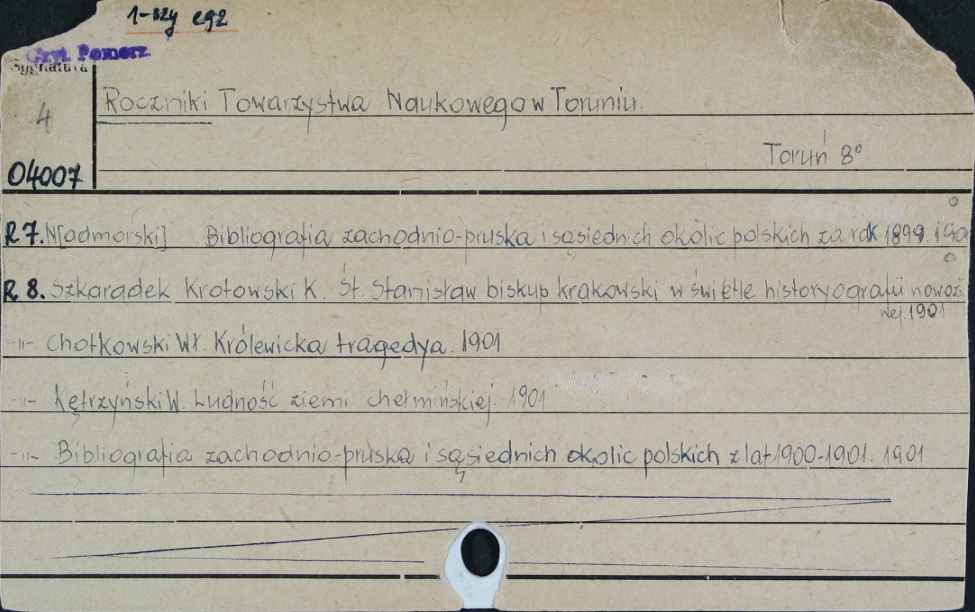 1-szy egz
Czyt. Pomorz.
Sygnatura
4
04007
Roczniki Towarzystwa Naukowego w Toruniu.
Toruń 8°
R 7. N[admorski] Bibliografia zachodnio-pruska i sąsiednich okolic polskich za rok 1899.
R 8. Szkaradek Krotowski K. Św. Stanisław biskup krakowski w świetle historyografii nowoż
nej. 1901
-"- Chotkowski Wł. Królewicka tragedya. 1901
-"- Kętrzyński W. Ludność ziemi chełmińskiej. 1901
-"- Bibliografia zachodnio-pruska i sąsiednich okolic polskich z lat 1900-1901. 1901